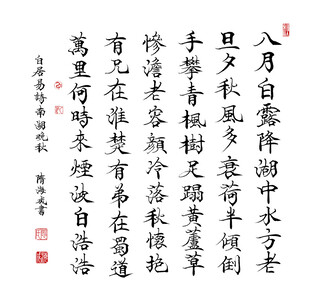 八月白露降湖中水方老
旦夕秋風多衰荷半傾倒
手攀青楓樹足蹋黃蘆草
慘澹老容顏冷落秋懷抱
有兄在淮楚有弟在蜀道
萬里何時來煙波白浩浩
白居易詩南湖晚秋
隋海書